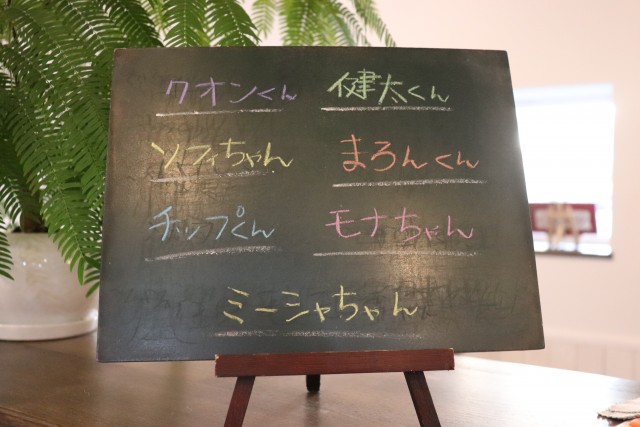 クオンくん 健太くん
ソフィちゃん まろんくん
チップくん モナちゃん
ミーシャちゃん